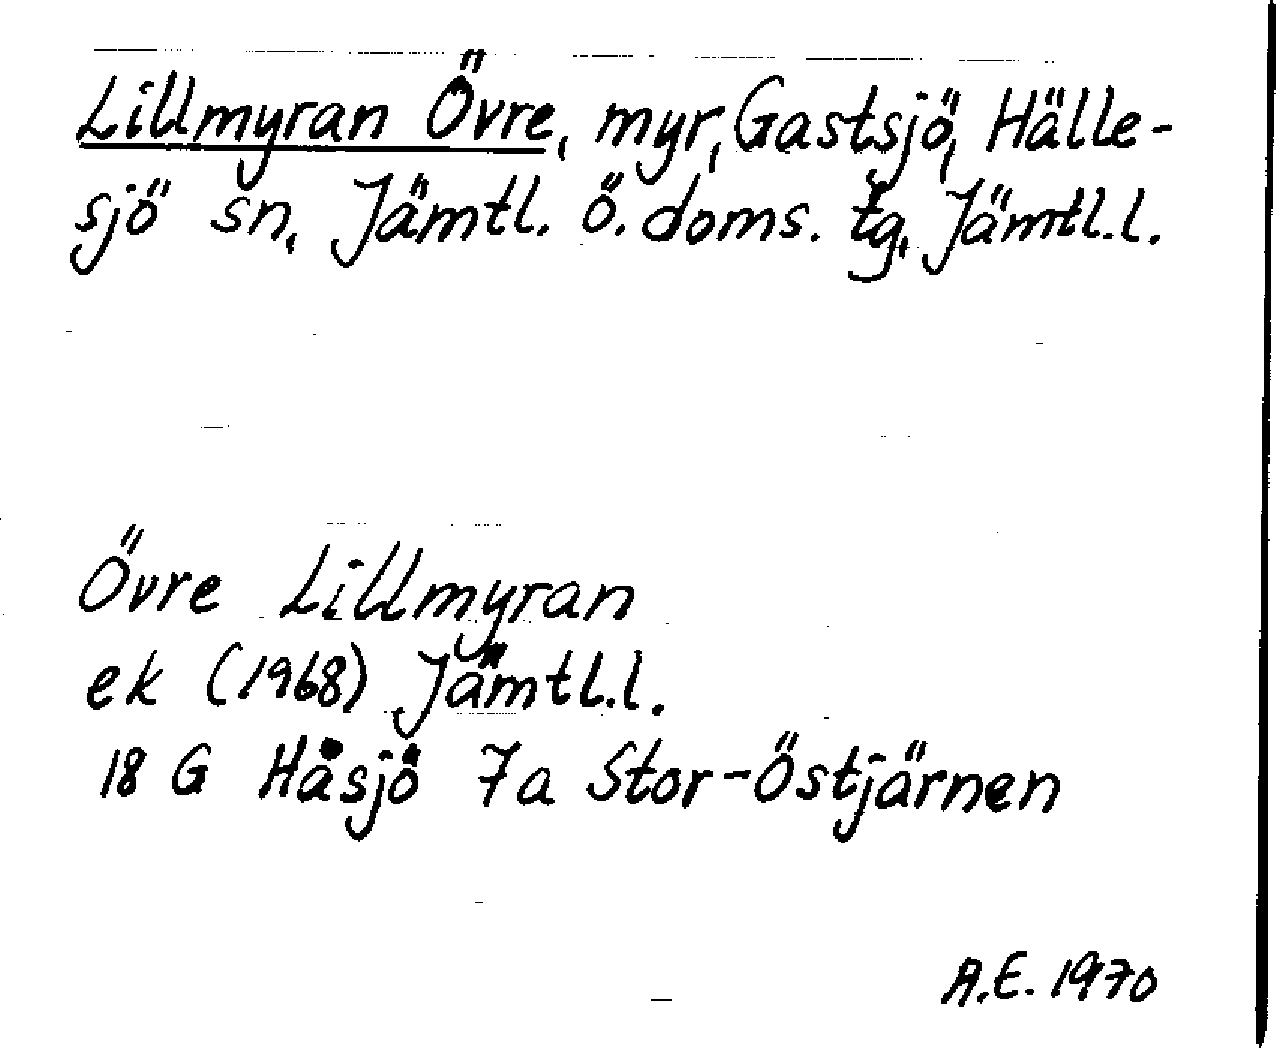 Lillmyran Övre, myr, Gastsjö, Hälle-
sjö sn, Jämtl. ö. doms. tg, Jämtl.l.
Övre Lillmyran
ek (1968) Jämtl.l.
18 G Håsjö 7a Stor-Östjärnen
A.E. 1970